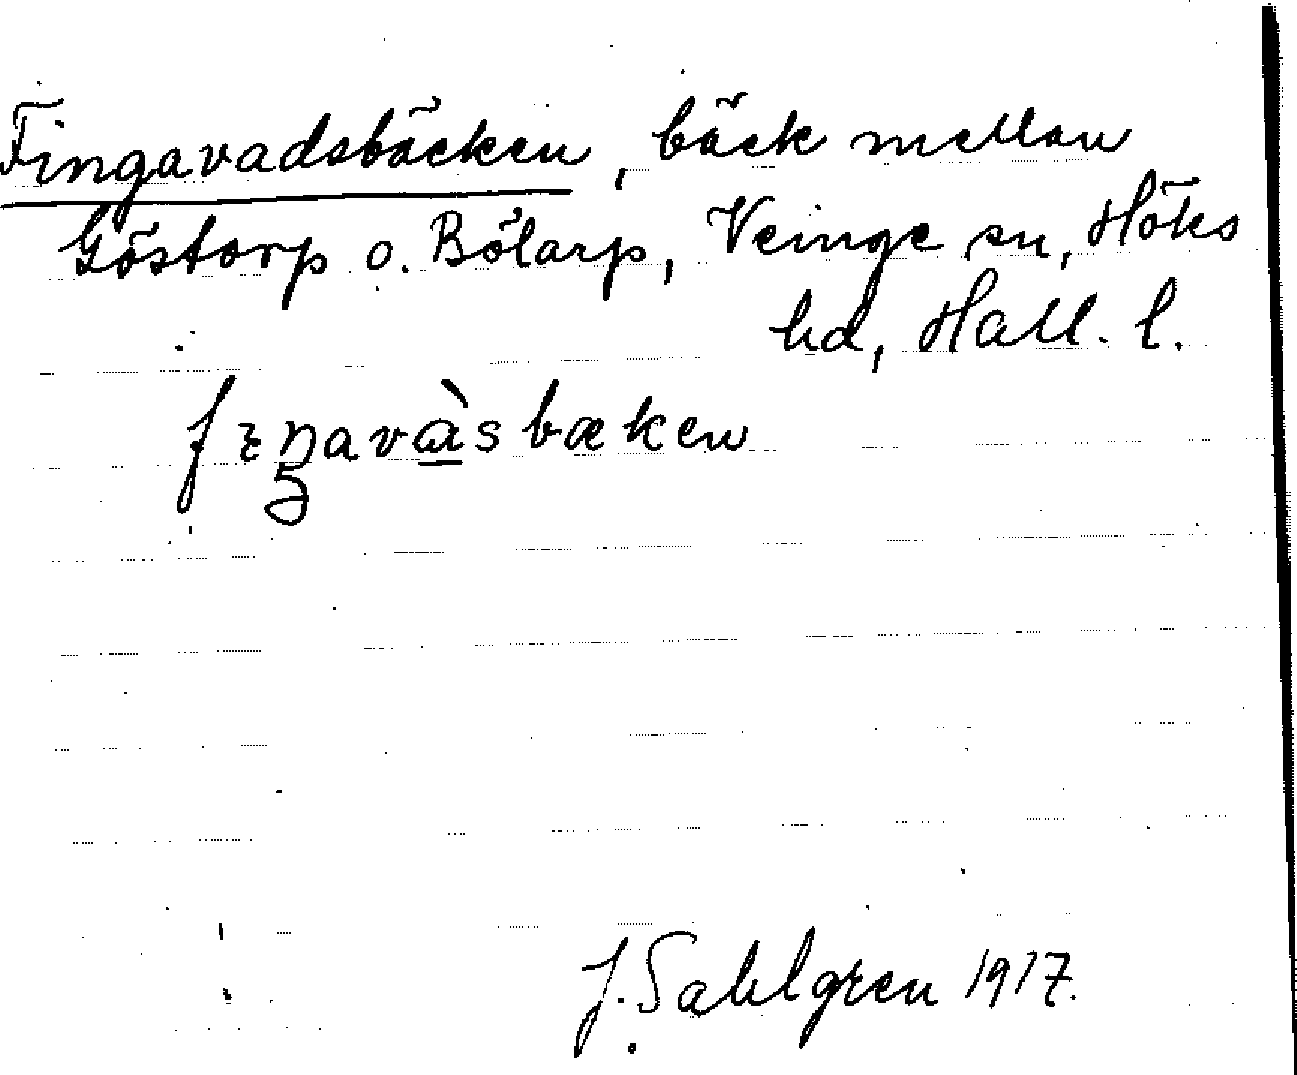 Fingavadsbäcken, bäck mellan
Göstorp o. Bölarp, Veinge sn, Höks
hd, Hall. l.
fɪŋavàsbæken
J. Sahlgren 1917.